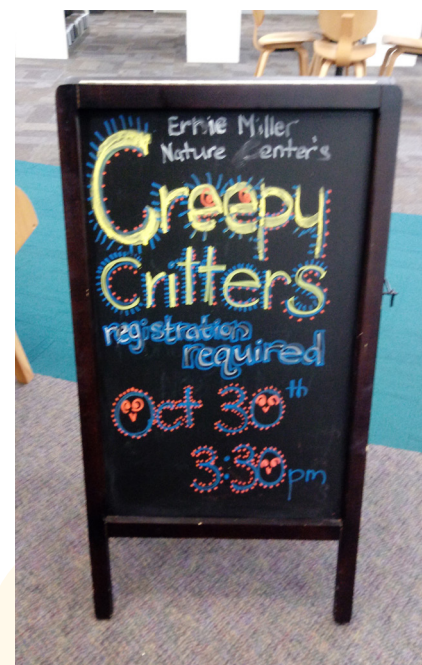 Ernie Miller
Nature Center's
Creepy
Critters
registration
required
Oct 30th
3:30pm